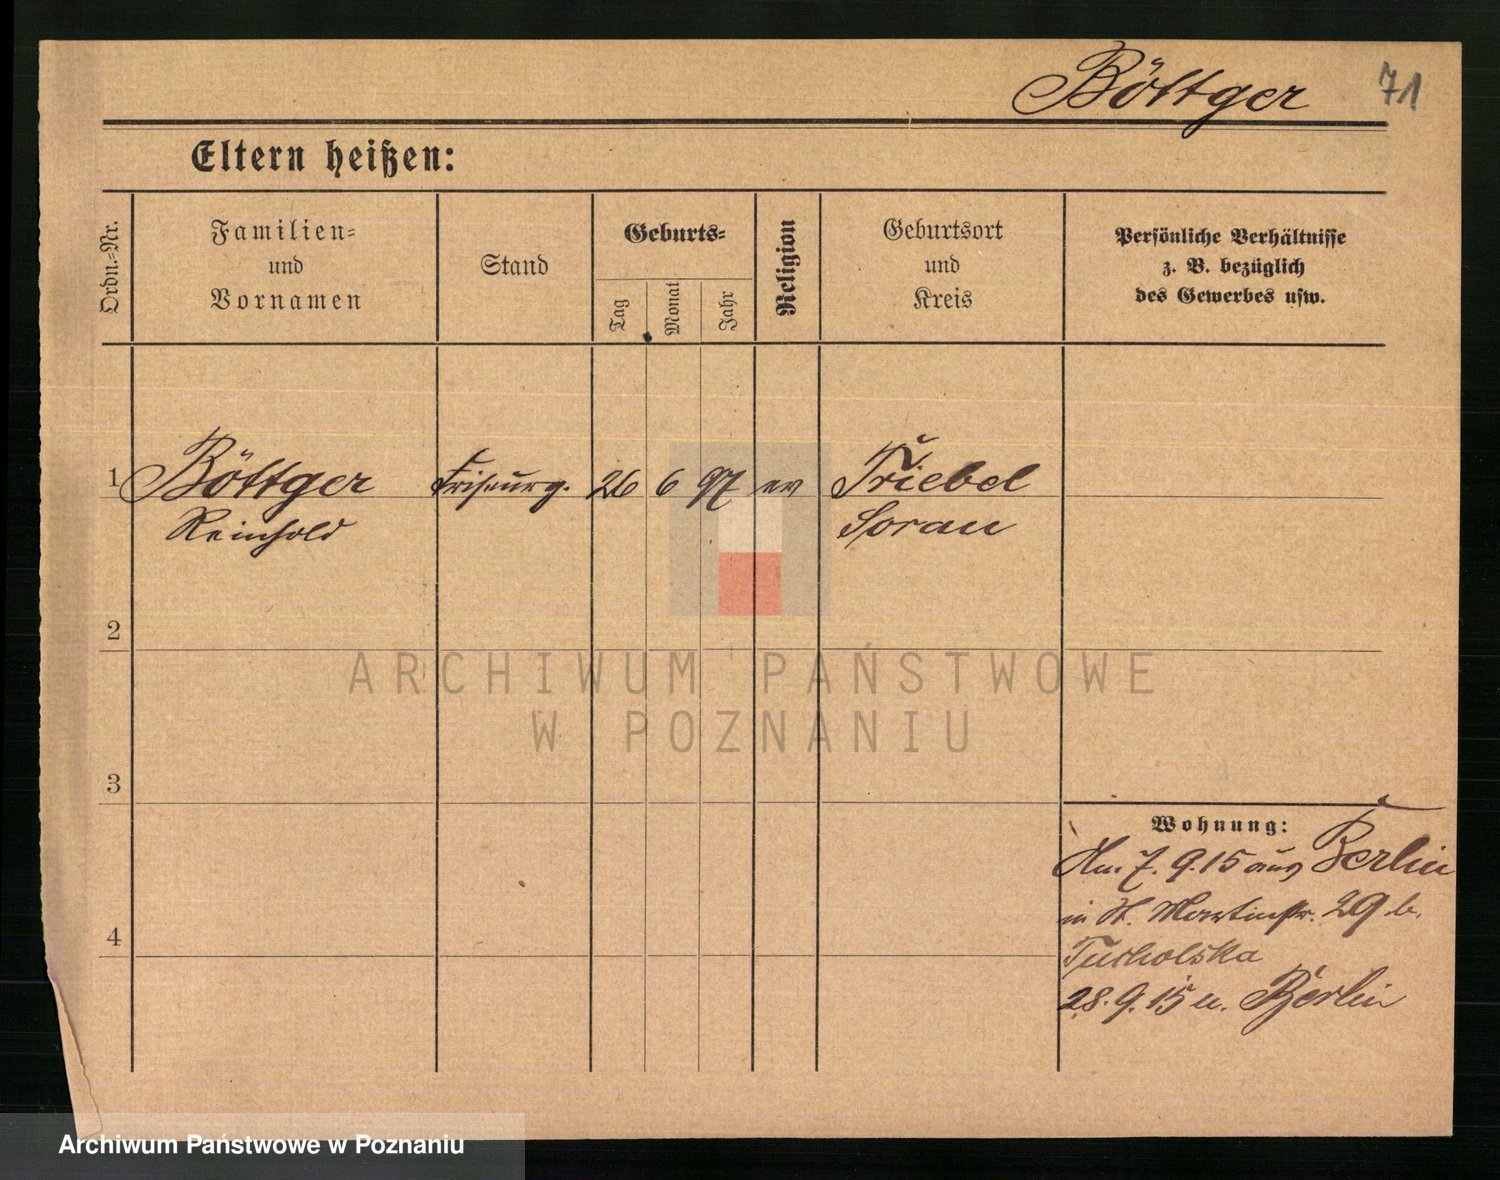 Böttger 71
Eltern heißen:
Ordn.-Nr.
Familien-
und
Vornamen
Stand
Geburts-
Tag
Monat
Jahr
Religion
Geburtsort
und
Kreis
Persönliche Verhältnisse
z. B. bezüglich
des Gewerbes usw.
1 Böttger Friseurg. 26 6 97 ev Triebel
Reinhold Sorau
2
ARCHIWUM PAŃSTWOWE
W POZNANIU
3
Wohnung:
Am 7. 9. 15 aus Berlin
in St. Martinstr. 29 b.
4
Tucholska
28. 9. 15 n. Berlin
Archiwum Państwowe w Poznaniu